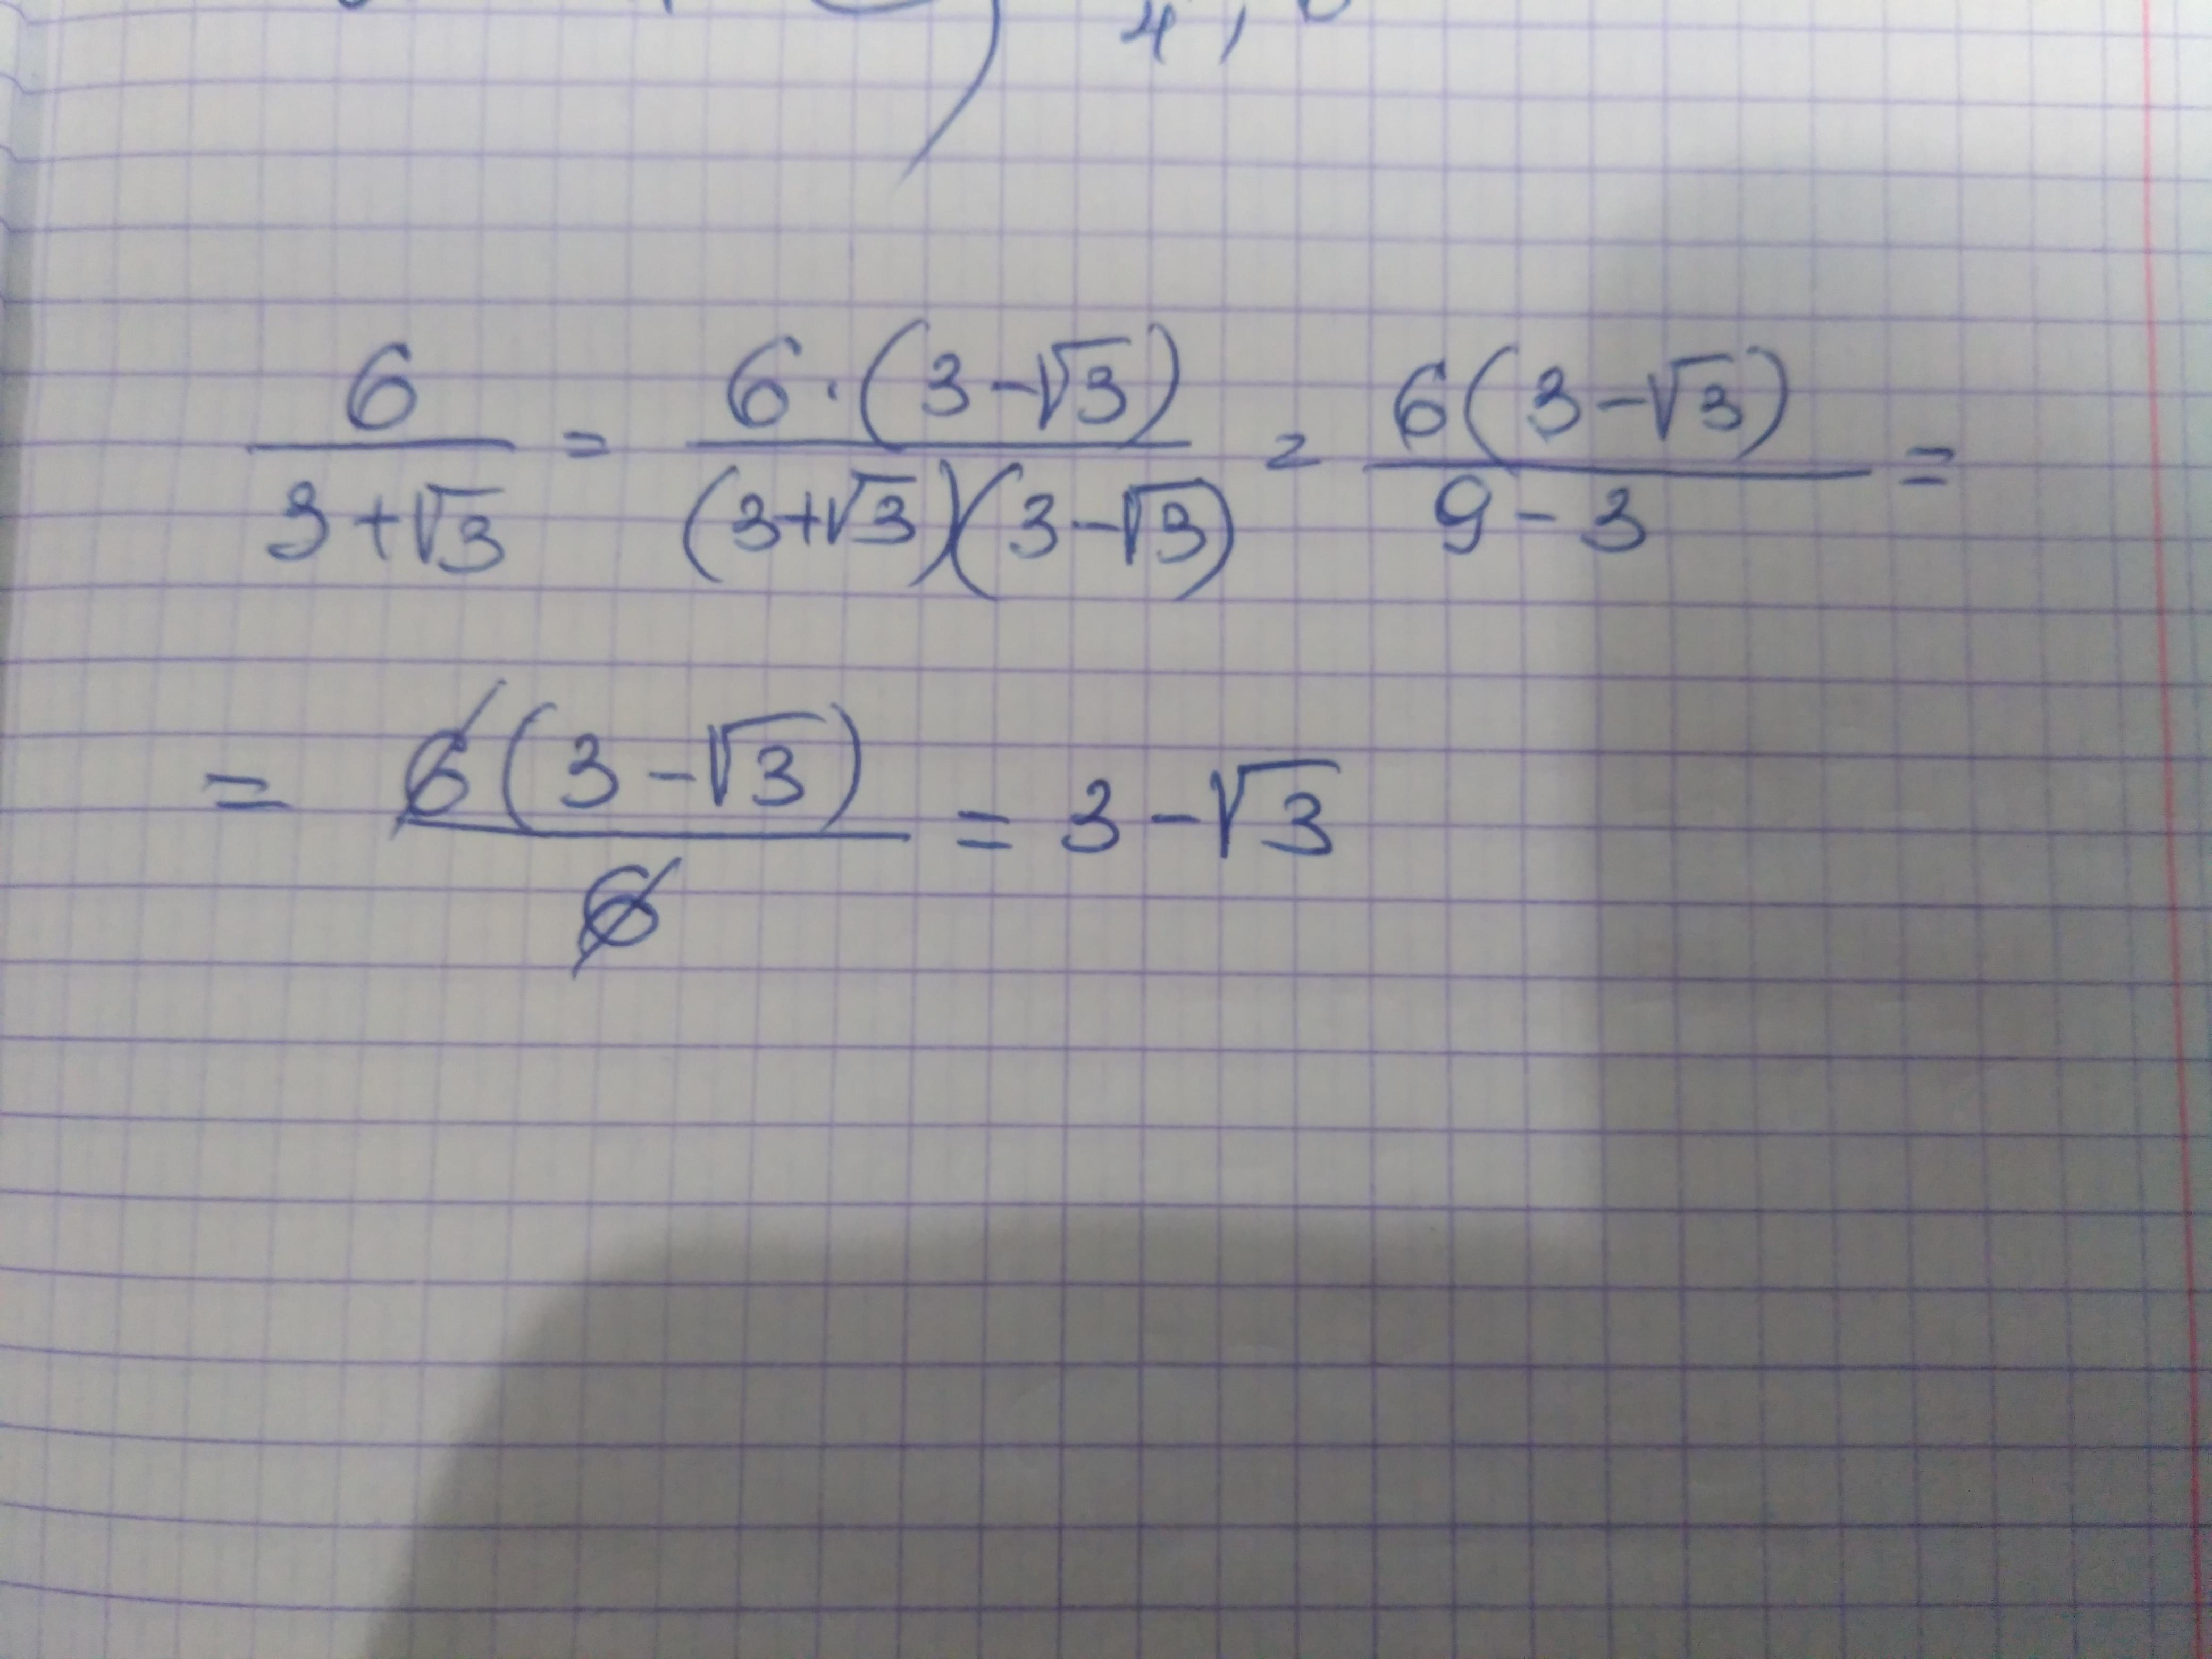 4,
6 / (3+√3) = 6·(3-√3) / (3+√3)(3-√3) = 6(3-√3) / 9-3 =
= 6(3-√3) / 6 = 3-√3